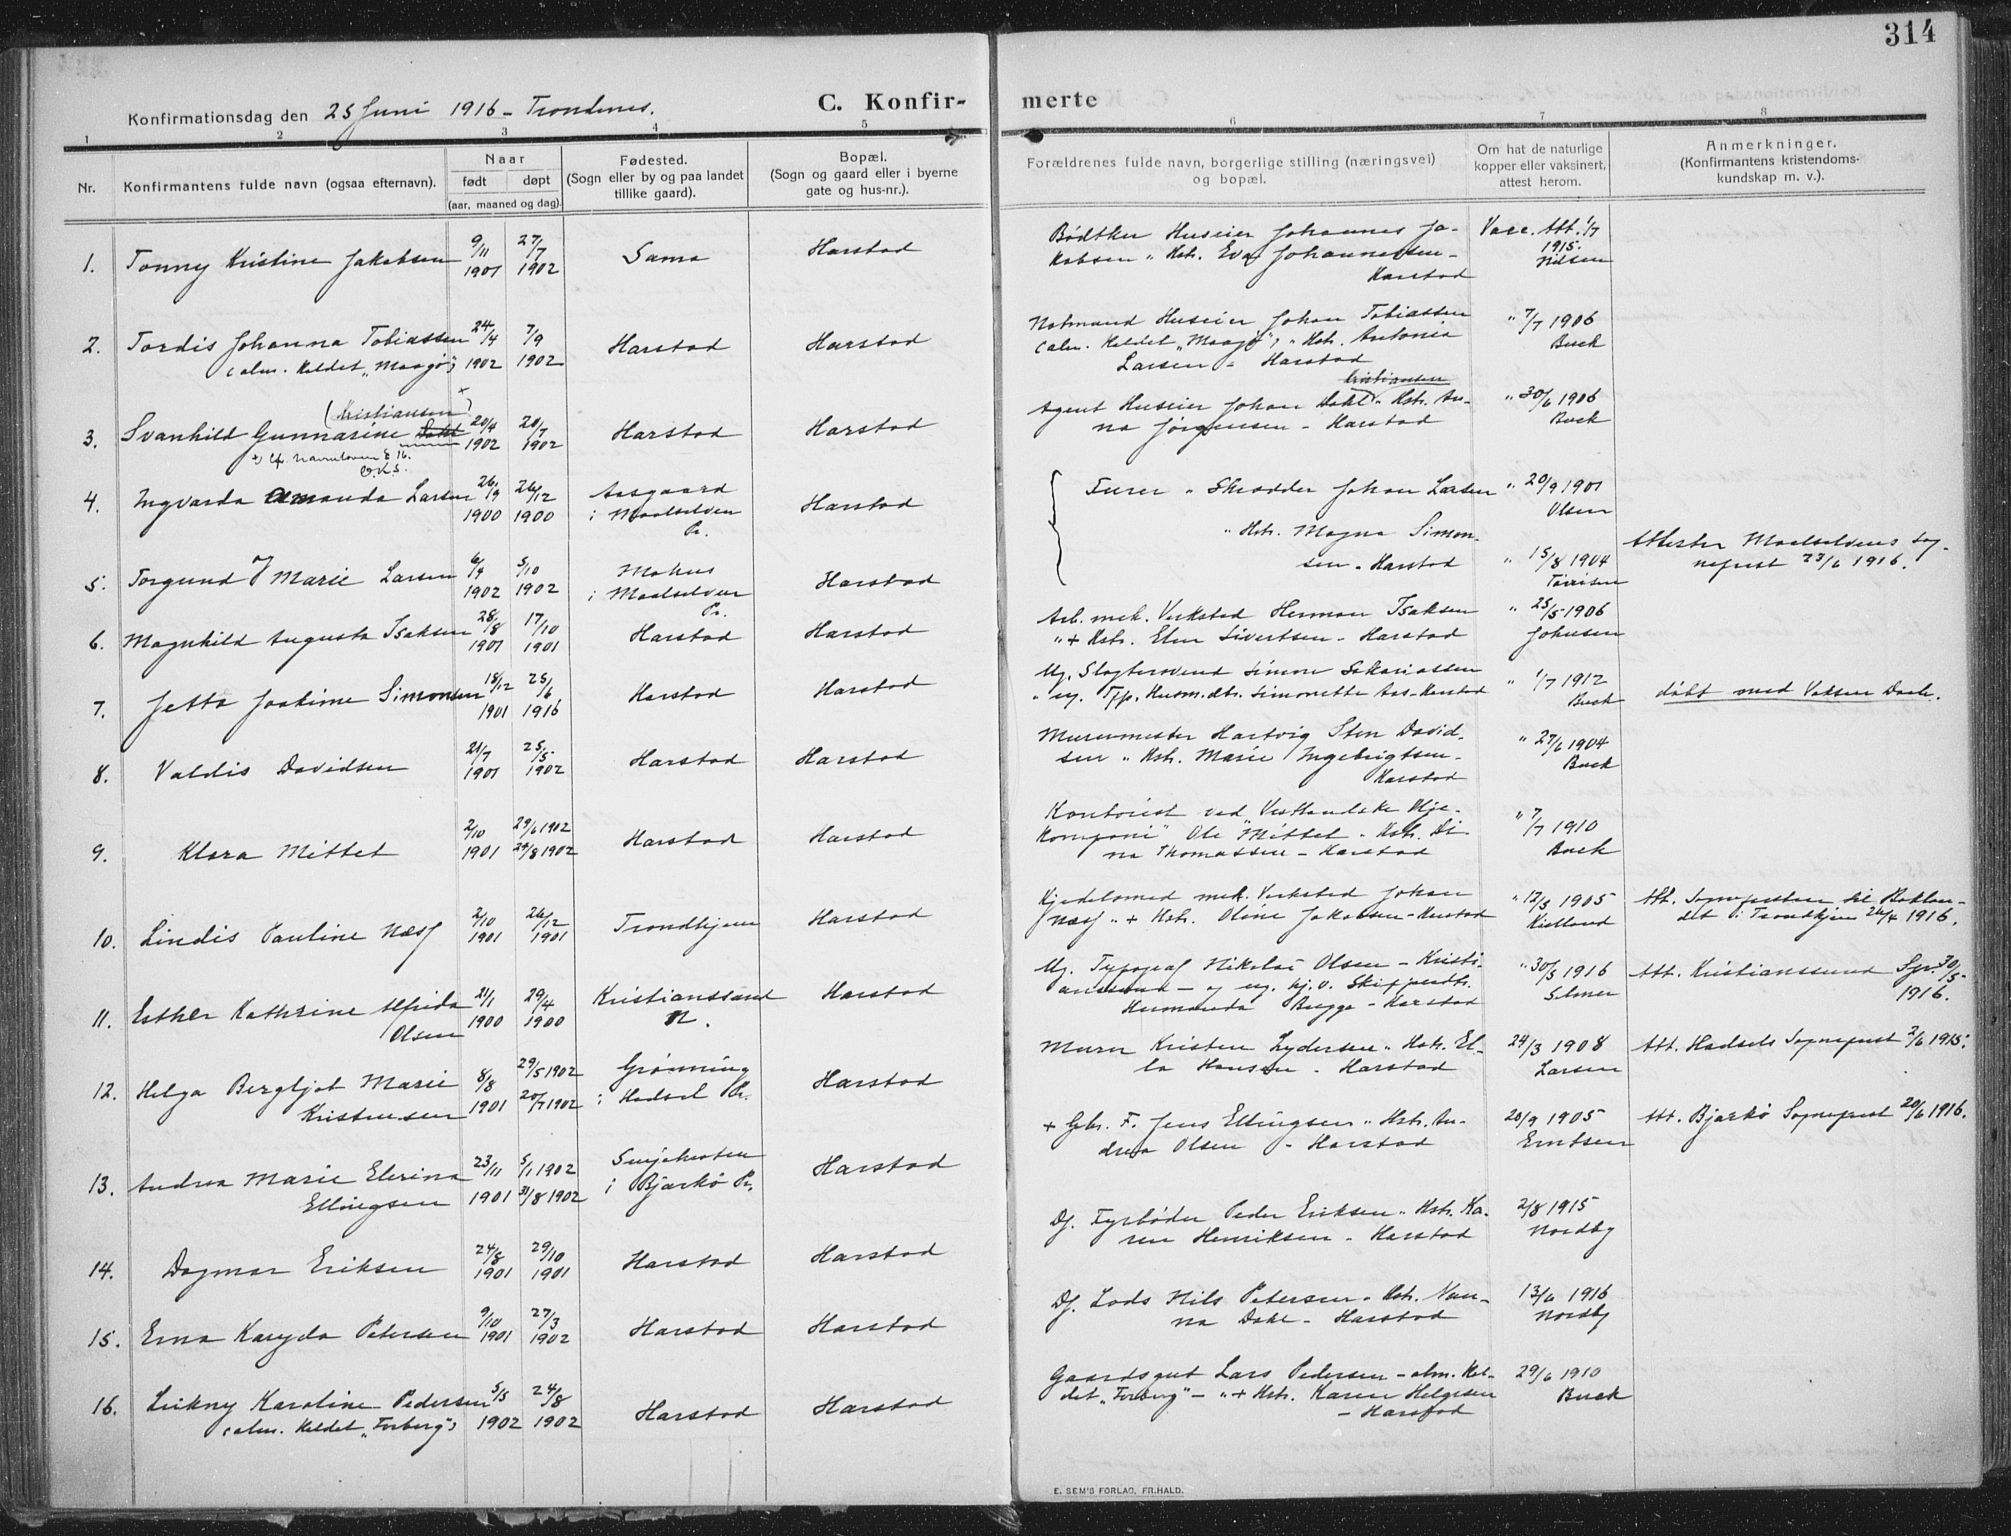 314
Konfirmationsdag den 25 Juni 1916 - Trondenes.
C. Konfir-
merte
1 2 3 4 5 6 7 8
Nr.
Konfirmantens fulde navn (ogsaa efternavn).
Naar
født døpt
(aar, maaned og dag).
Fødested.
(Sogn eller by og paa landet
tillike gaard).
Bopæl.
(Sogn og gaard eller i byerne
gate og hus-nr.).
Forældrenes fulde navn, borgerlige stilling (næringsvei)
og bopæl.
Om hat de naturlige
kopper eller vaksinert,
attest herom.
Anmerkninger.
(Konfirmantens kristendoms-
kundskap m. v.).
1. Tonny Kristine Jakobsen 9/11 1901 27/7 1902 Sama Harstad
Bødtker Huseier Johannes Ja-
kobsen " Hstr. Eva Johannessen -
Harstad
Vacc. Att. 1/7
1915.
Nilsen
2. Tordis Johanna Tobiassen 24/4 1902 7/9 1902 Harstad Harstad
(alm. kaldet „Maagø")
Notmand Huseier Johan Tobiassen
(alm. kaldet „Maagø") " Hstr. Antonia
Larsen - Harstad
" 7/7 1906
Buck
3. Svanhild Gunnarine Dahl 20/4 1902 20/7 1902 Harstad Harstad
(Kristiansen)
+) Cf. Navneloven § 16.
O.K.S.
Kristiansen
Agent Huseier Johan Dahl " Hstr. An-
na Jørgensen - Harstad
" 30/6 1906
Buck
4. Ingvarda Amanda Larsen 26/9 1900 26/12 1900 Aasgaard Harstad
i Maalselven
Pr.
Turer " Skrædder Johan Larsen
" Hstr. Magna Simon-
sen - Harstad
" 20/9 1901
Olsen
5. Torgund Marie Larsen 6/4 1902 5/10 1902 Mohus Harstad
i Maalselven
Pr.
" 15/8 1904
Attester Maalselvens Sog-
neprest 23/6 1916.
6. Magnhild Augusta Isaksen 28/8 1901 17/10 1901 Harstad Harstad
Arb. mek. Verksted Herman Isaksen
" + Hstr. Elen Sivertsen - Harstad
" 25/5 1906
Johnsen
7. Jetta Joakime Simonsen 18/12 1901 25/6 1916 Harstad Harstad
Ug. Slagtersvend Simon Sakariassen
" ug. Tjp. Husm.dtr. Simonette Aas - Harstad
" 1/7 1912
Buck
døbt med Voksen Daab.
8. Valdis Davidsen 21/7 1901 25/5 1902 Harstad Harstad
Murermester Hartvig Sten David-
sen " Hstr. Marie Ingebrigtsen -
Harstad
" 27/6 1904
Buck
9. Klara Mittet 2/10 1901 29/6 1902 24/8 1902 Harstad Harstad
Kontorist ved „Vestlandske Olje-
kompani" Ole Mittet - Hstr. Di-
na Thomassen - Harstad
" 7/7 1910
Buck
10. Lindis Pauline Næss 2/10 1901 26/12 1901 Trondhjem Harstad
Kjedelsmed mek. Verksted Johan
Næss " + Hstr. Oline Jakobsen - Harstad
" 12/5 1905
Kielland
Att. Sognepresten til Baklan-
det i Trondhjem 26/4 1916.
11. Esther Kathrine Alfrida 21/1 1900 29/4 1900 Kristianssund Harstad
Olsen N.
Ug. Typograf Nikolai Olsen - Kristi-
anssund - og ug. hj.v. Skipperdtr.
Hermanda Brygge - Harstad
" 30/5 1916
Selmer
Att. Kristianssund Spr. 30/5
1916.
12. Helga Bergljot Marie 8/8 1901 29/5 1902 20/7 1902 Grønning Harstad
Kristensen i Hadsel Pr.
Murer Kristen Lydersen " Hstr. El-
la Hansen - Harstad
24/3 1908
Larsen
Att. Hadsels Sogneprest 2/6 1915.
13. Andrea Marie Elerina 23/11 1901 5/1 1902 31/8 1902 Harstad
Ellingsen i Bjarkø Pr.
+ Gbr. F. Jens Ellingsen " Hstr. An-
drea Olsen - Harstad
20/9 1905
Erntsen
Att. Bjarkø Sogneprest 20/6 1916.
14. Dagmar Eriksen 24/8 1901 29/10 1901 Harstad Harstad
Df. Fyrbøder Peder Eriksen " Hstr. Ka-
ren Henriksen - Harstad
2/8 1915
Nordby
15. Erna Karyda Petersen 9/10 1901 27/3 1902 Harstad Harstad
Df. Lods Nils Petersen - Hstr. Nan-
na Dahl - Harstad
13/6 1916
Nordby
16. Leikny Karoline Pedersen 5/5 1902 24/8 1902 Harstad Harstad
(alm. kaldet „Forberg")
Gaardsgut Lars Pedersen - alm. kal-
det „Forberg" - " + Hstr. Karen Helgesen
- Harstad
29/6 1910
Buck
E. SEM'S FORLAG, FR.HALD.